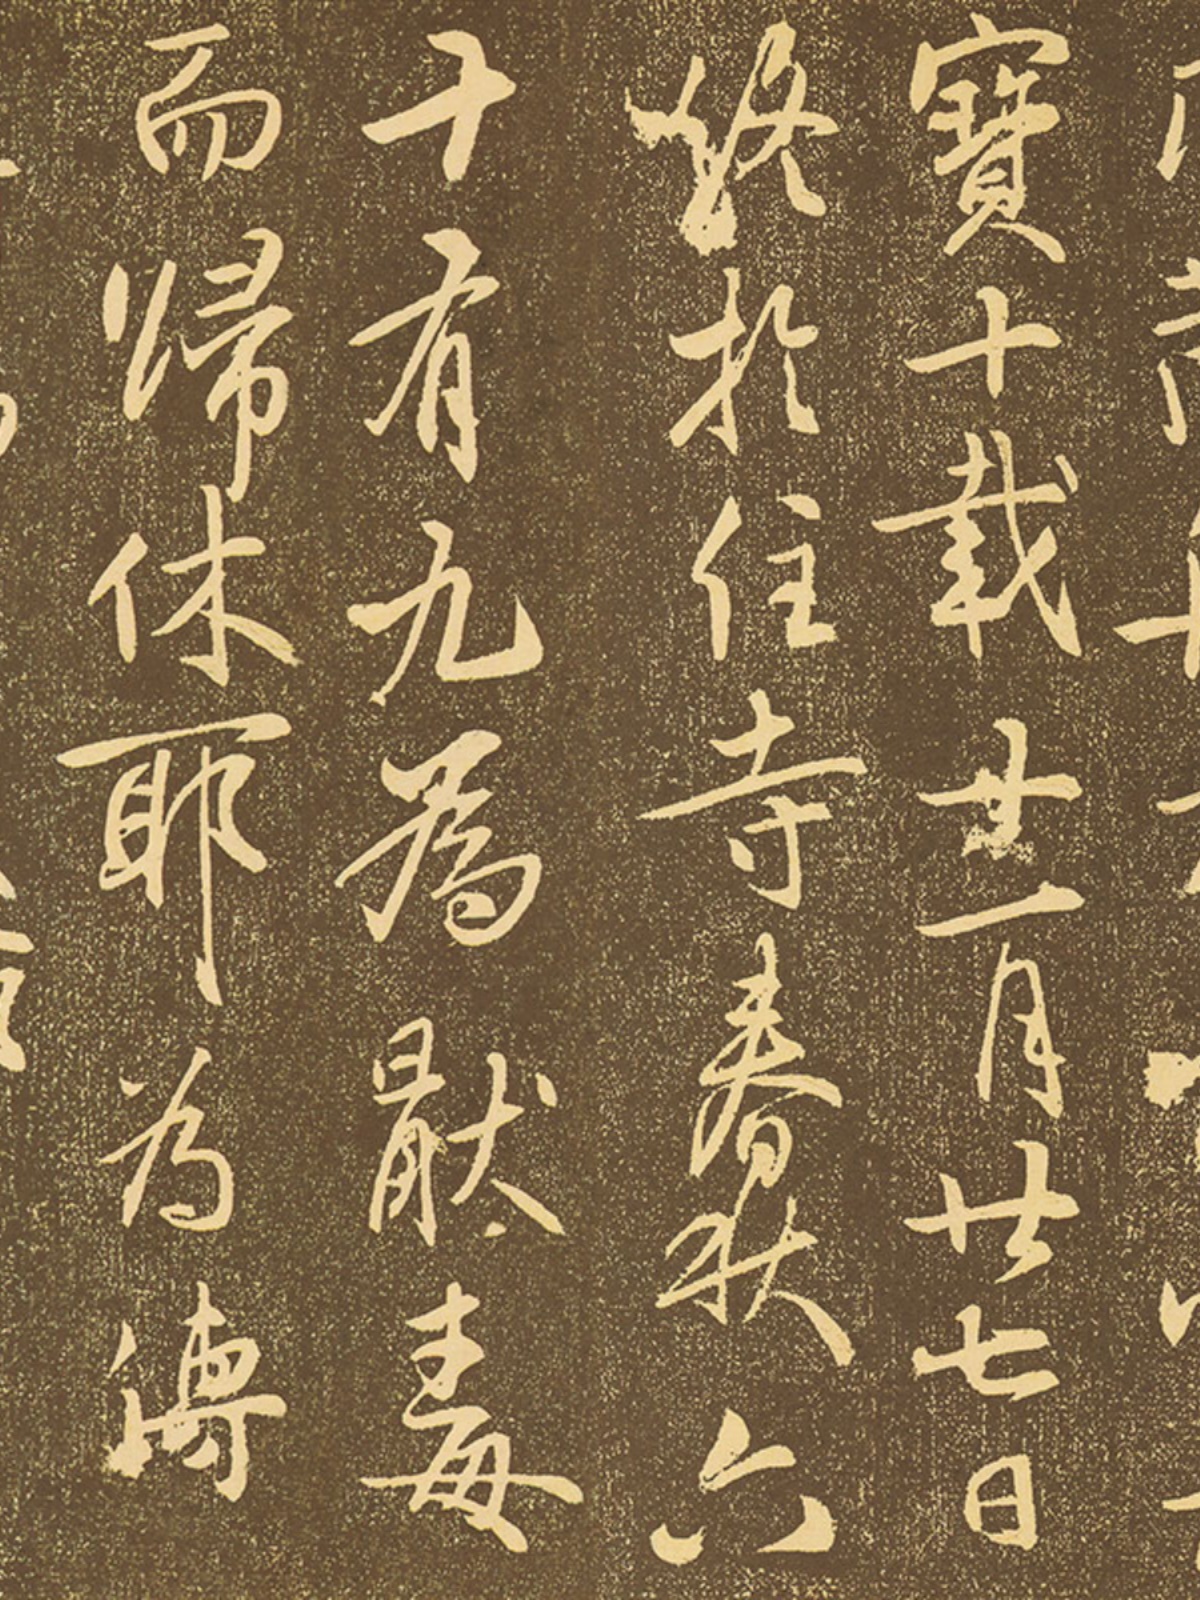 寶十載廿一月廿七日
終於住寺春秋六
十有九為猒毒
而歸休耶為傳